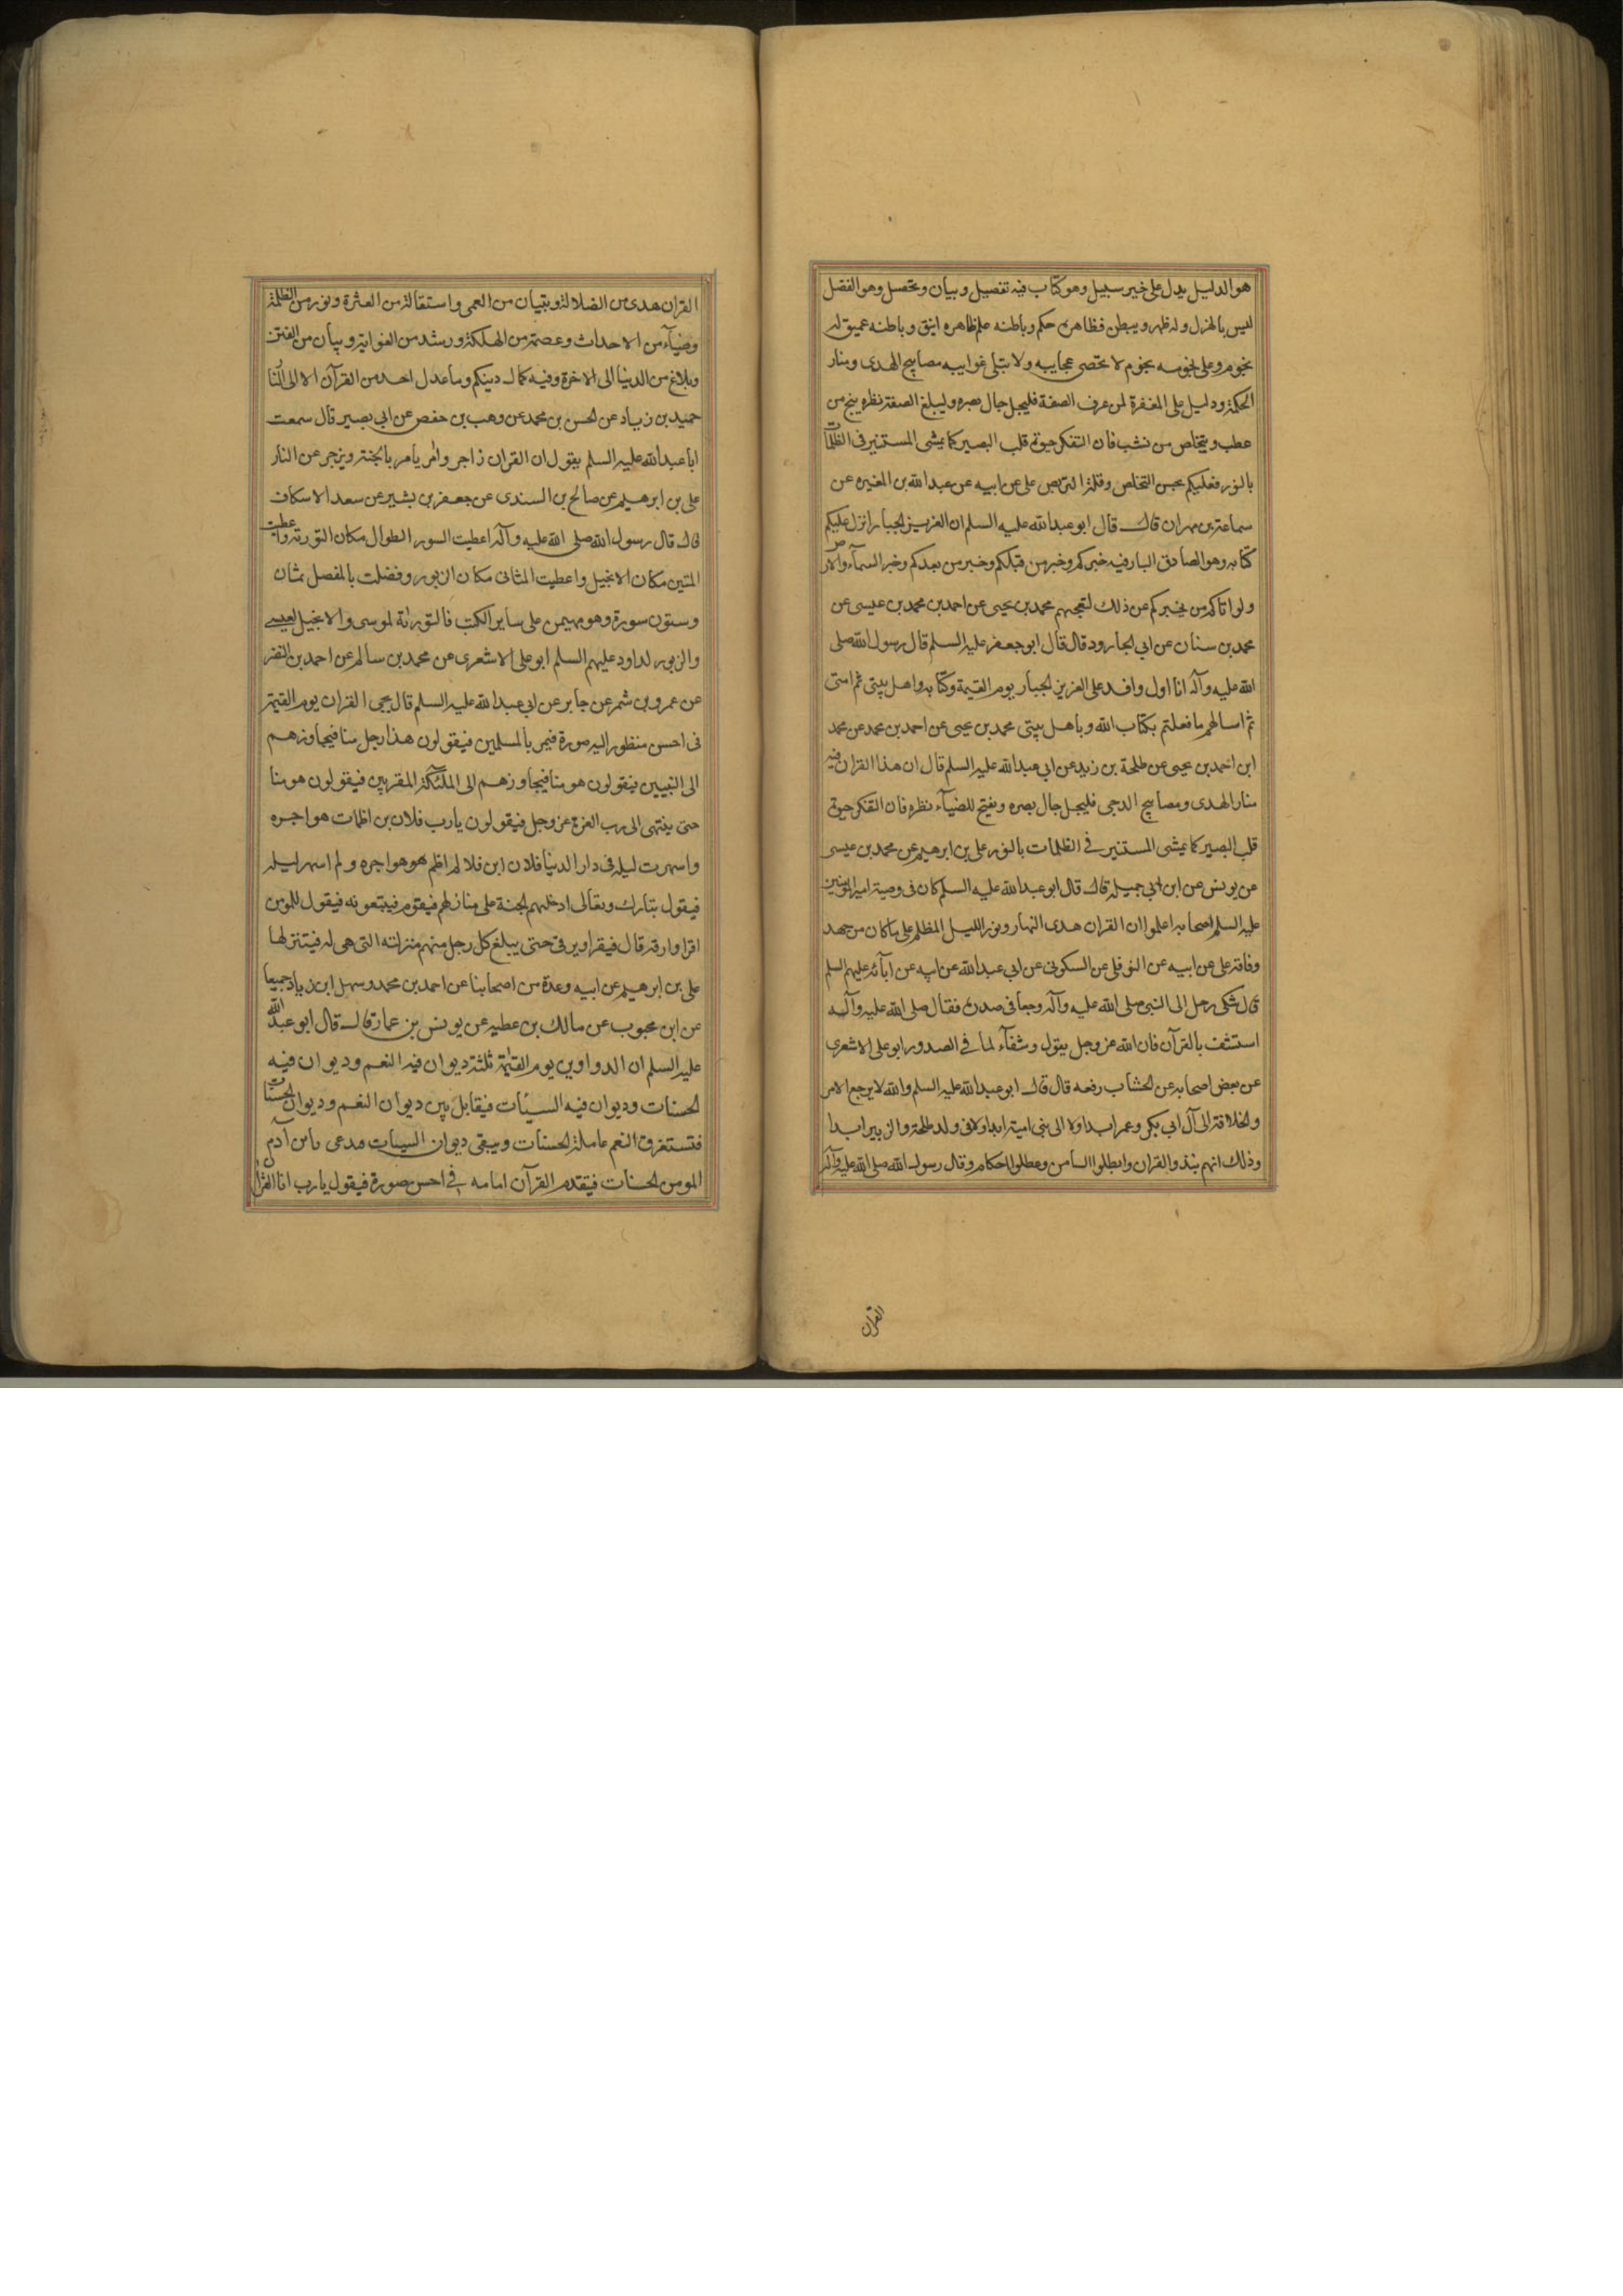 هو الدليل يدل على خير سبيل وهو كتاب فيه تفصيل وبيان وتحصيل وهو الفضل
ليس بالهزل وله ظهر وبطن فظاهره حكم وباطنه علم ظاهره انيق وباطنه عميق له
نجوم وعلى نجومه نجوم لا تحصى عجايبه ولا تبلى غرايبه مصابيح الهدى ومنار
الحكمة ودليل على المغفرة لمن عرف الصفة فليجل جال بصره وليبلغ الصفة نظره ينج من
عطب ويتخلص من نشب فان التفكر حيوة قلب البصير كما يمشى المستنير فى الظلمات
بالنور فعليكم بحسن التخلص وقلة التربص على عن ابيه عن عبدالله بن المغيره عن
سماعة بن مهران قال قال ابو عبدالله عليه السلم ان العزيز الجبار انزل عليكم
كتابه وهو الصادق البار فيه خبركم وخبر من قبلكم وخبر من بعدكم وخبر السمآء والارض
ولو اتاكم من يخبركم عن ذلك لتعجبتم محمد بن يحيى عن احمد بن محمد بن عيسى عن
محمد بن سنان عن ابي الجارود قال قال ابو جعفر عليه السلم قال رسول الله صلى
الله عليه وآله انا اول وافد على العزيز الجبار يوم القيمة وكتابه واهل بيتى ثم امتى
ثم اسالهم ما فعلتم بكتاب الله وباهل بيتى محمد بن يحيى عن احمد بن محمد عن محمد
ابن احمد بن يحيى عن طلحة بن زيد عن ابي عبدالله عليه السلم قال ان هذا القران فيه
منار الهدى ومصابيح الدجى فليجل جال بصره ويفتح للضيآء نظره فان التفكر حيوة
قلب البصير كما يمشى المستنير فى الظلمات بالنور على بن ابرهيم عن محمد بن عيسى
عن يونس عن ابن ابي جميله قال قال ابو عبدالله عليه السلم كان فى وصية امير المومنين
عليه السلم اصحابه اعلموا ان القران هدى النهار ونور الليل المظلم على ما كان من جهد
وفاقة على عن ابيه عن النوفلى عن السكونى عن ابي عبدالله عن ابيه عن ابآئه عليهم السلم
قال شكى رجل الى النبى صلى الله عليه وآله وجعا فى صدره فقال صلى الله عليه وآله
استشف بالقرآن فان الله عز وجل يقول وشفآء لما فى الصدور ابو على الاشعرى
عن بعض اصحابه عن الخشاب رفعه قال قال ابو عبدالله عليه السلم والله لا يرجع الامر
والخلافة الى آل ابي بكر وعمر ابدا ولا الى بنى امية ابدا ولا فى ولد طلحة والزبير ابدا
وذلك انهم نبذوا القران وابطلوا السنن وعطلوا الاحكام وقال رسول الله صلى الله عليه وآله
القران
القران هدى من الضلالة وتبيان من العمى واستقالة من العثرة ونور من الظلمة
وضيآء من الاحداث وعصمة من الهلكة ورشد من الغواية وبيان من الفتن
وبلاغ من الدنيا الى الاخرة وفيه كمال دينكم وما عدل احد من القرآن الا الى النار
حميد بن زياد عن الحسن بن محمد عن وهب بن حفص عن ابي بصير قال سمعت
ابا عبدالله عليه السلم يقول ان القران زاجر وامر يامر بالجنة ويزجر عن النار
على بن ابرهيم عن صالح بن السندى عن جعفر بن بشير عن سعد الاسكاف
قال قال رسول الله صلى الله عليه وآله اعطيت السور الطوال مكان التورية واعطيت
المئين مكان الانجيل واعطيت المثانى مكان الزبور وفضلت بالمفصل ثمان
وستون سورة وهو مهيمن على ساير الكتب فالتوراة لموسى والانجيل لعيسى
والزبور لداود عليهم السلم ابو على الاشعرى عن محمد بن سالم عن احمد بن النضر
عن عمرو بن شمر عن جابر عن ابي عبدالله عليه السلم قال يجى القران يوم القيمة
فى احسن منظور اليه صورة فيمر بالمسلمين فيقولون هذا رجل منا فيجاوزهم
الى النبيين فيقولون هو منا فيجاوزهم الى الملئكة المقربين فيقولون هو منا
حتى ينتهى الى رب العزة عز وجل فيقولون يا رب فلان بن اظمات هواجره
واسهرت ليله فى دار الدنيا فلان ابن فلا لم اظم هو هواجره ولم اسهر ليله
فيقول تبارك وتعالى ادخلهم الجنة على منازلهم فيقوم فيتبعونه فيقول للمومن
اقرا وارقه قال فيقرا ويرقى حتى يبلغ كل رجل منهم منزلته التى هى له فينزلها
على بن ابرهيم عن ابيه وعدة من اصحابنا عن احمد بن محمد وسهل ابن زياد جميعا
عن ابن محبوب عن مالك بن عطيه عن يونس بن عمار قال قال ابو عبدالله
عليه السلم ان الدواوين يوم القيمة ثلثة ديوان فيه النعم وديوان فيه
الحسنات وديوان فيه السيئات فيقابل بين ديوان النعم وديوان الحسنات
فتستغرق النعم عاملة الحسنات ويبقى ديوان السيئات فيدعى بابن آدم
المومن لحسنات فيتقدم القرآن امامه فى احسن صورة فيقول يا رب انا القران